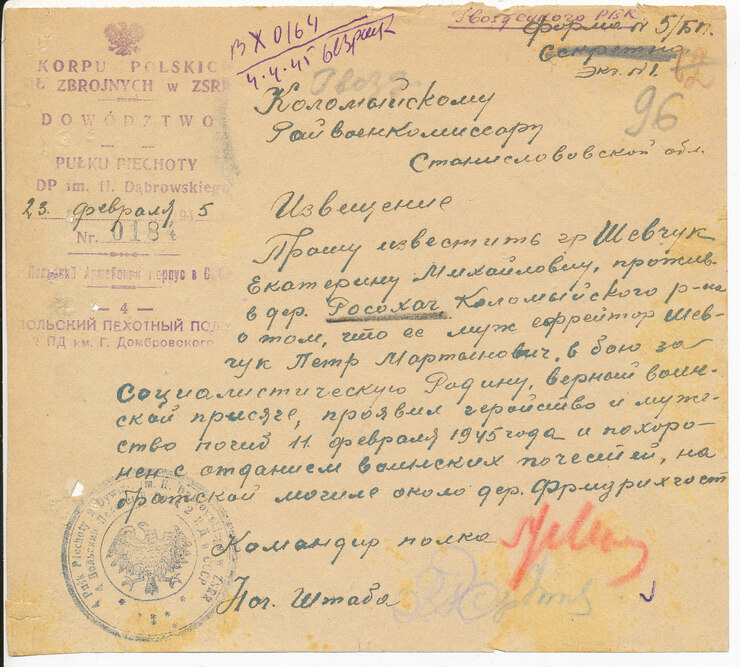 KORPU POLSKIC
IŁ ZBROJNYCH w ZSRR
DOWÓDZTWO
PUŁKU PIECHOTY
DP im. H. Dąbrowskiego
23 февраля 5
Nr. 0184
Польский Армейский Корпус в СССР
— 4 —
ПОЛЬСКИЙ ПЕХОТНЫЙ ПОЛ
ПД им. Г. Домбровского
ВХ 0164
4.4.45
Гвоздецкого РВК
Форма N 5/Бп.
Секретно
Экз. N 1.
96
Коломыйскому
Райвоенкомиссару
Станиславовской обл.
Извещение
Прошу известить гр Шевчук
Екатерину Михайловну, прожив–
в дер. Росохач Коломыйского р–на
о том, что ее муж ефрейтор Шев–
чук Петр Мартынович, в бою за
Социалистическую Родину, верный воин–
ской присяге, проявил геройство и муже–
ство погиб 11 февраля 1945 года и похоро–
нен с отданием воинских почестей, на
братской могиле около дер. Фридрихгост
Командир полка
Нач. Штаба
4 Pułk Piechoty